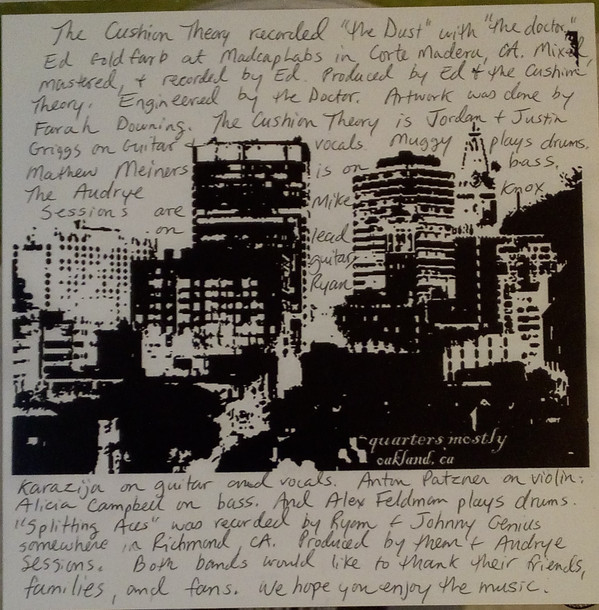 The Cushion Theory recorded "the Dust" with "the doctor,"
Ed Goldfarb at MadcapLabs in Corte Madera, CA. Mixed,
mastered, + recorded by Ed. Produced by Ed + the Cushion
Theory. Engineered by the Doctor. Artwork was done by
Farah Downing. The Cushion Theory is Jordan + Justin
Griggs on Guitar + vocals. Muggy plays drums.
Mathew Meiners is on bass.
The Audrye Mike Knox
Sessions are
on lead
guitar,
Ryan
quarters mostly
oakland, ca
Karazija on guitar and vocals. Anton Patzner on violin.
Alicia Campbell on bass. And Alex Feldman plays drums.
"Splitting Aces" was recorded by Ryan + Johnny Genius
somewhere in Richmond, CA. Produced by them + Audrye
Sessions. Both bands would like to thank their friends,
families, and fans. We hope you enjoy the music.